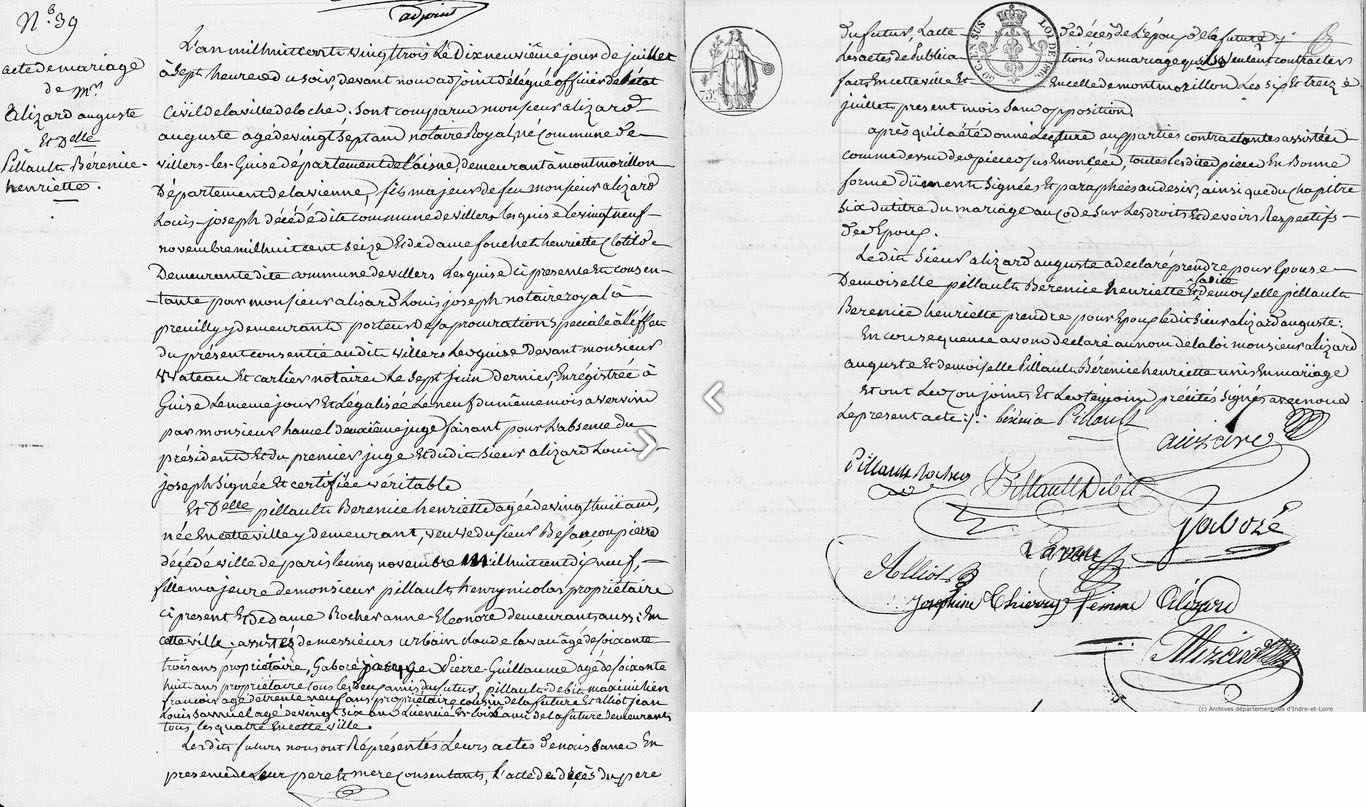 adjoint
N.º 39
acte de mariage
de Mr
Alizard auguste
Et Delle
Pillault Bérénice
henriette.
L'an mil huit cent vingt trois Le Dix neuvième jour de juillet
à Sept heures du soir, devant nous adjoint délégué officier de l'état
Civil de la ville de loches, Sont comparus monsieur alizard
auguste agé de vingt Sept ans notaire Royal, né Commune de
villers-les-Guise département de l'aisne, demeurant à montmorillon
Département de la vienne, fils majeur de feu monsieur alizard
Louis-joseph décédé dite commune de villers les guise le vingt neuf
novembre mil huit cent Seize Et de dame fouchet henriette Clotilde
Demeurante dite commune de villers Les guise ci présente Et consen-
tante par monsieur alizard Louis joseph notaire royal à
preuilly y demeurant porteur de la procuration Spéciale à l'effet
du présent consentie audit villers les guise devant monsieur
Wateau Et cartier notaires Le Sept juin dernier, Enregistrée à
Guise Le même jour Et Légalisée Le neuf du même mois à vervins
par monsieur hamel deuxième juge faisant pour L'absence du
président Et du premier juge Et dudit Sieur alizard Louis
joseph Signée Et certifiée véritable
Et Delle pillault Berenice henriette agée de vingt huit ans,
née En cette ville y demeurant, veuve du Sieur Besancon pierre
décédé ville de paris le cinq novembre mil huit cent dix neuf,
fille majeure de monsieur pillault henry nicolas propriétaire
ci présent Et de dame Rocher anne-Eléonore demeurants aussi En
cette ville, assistés de messieurs urbain claude Lavau agé de soixante
trois ans propriétaire, Gaboré Pierre-Guillaume agé de soixante
huit ans propriétaire tous les deux amis du futur, pillault-debit maximilien
francois agé de trente neuf ans propriétaire cousin de la future Et alliot jean
Louis Samuel agé de vingt six ans Licencié En loix ami de la future demeurants
tous les quatre En cette ville
Les dits futurs nous ont Représentés Leurs actes de naissance En
présence de Leur pere Et mere Consentants, L'acte de décès du pere
du futur, L'acte de décès de l'époux de la future
Les actes de publications du mariage qu'ils veulent contracter
faits En cette ville Et En celle de montmorillon Les six Et treize
juillet présent mois Sans opposition.
après qu'il a été donné Lecture aux parties contractantes assistées
comme dessus des pièces sus énoncées, toutes Les dites pièces En Bonne
forme dûement Signées Et paraphées au desir, ainsi que du chapitre
Six du titre du mariage au code Sur Les droits Et devoirs Respectifs
des Epoux.
Le dit Sieur alizard auguste a déclaré prendre pour Epouse
Demoiselle pillault Bérénice henriette Et ladite demoiselle pillault
Bérénice henriette prendre pour Epoux ledit Sieur alizard auguste:
En conséquence avons déclaré au nom de la loi monsieur alizard
auguste Et demoiselle Pillault Bérénice henriette unis En mariage
Et ont Les Conjoints Et Les témoins précités Signés avec nous
Le présent acte:
Pillault
Pillault Rocher
Pillault Debit
Gaboré
Lavau
Alliot
Joséphine Thierry femme Alizard
Alizard
75c
50 CEN SUS
LOI DE 1816
(c) Archives départementales d'Indre-et-Loire